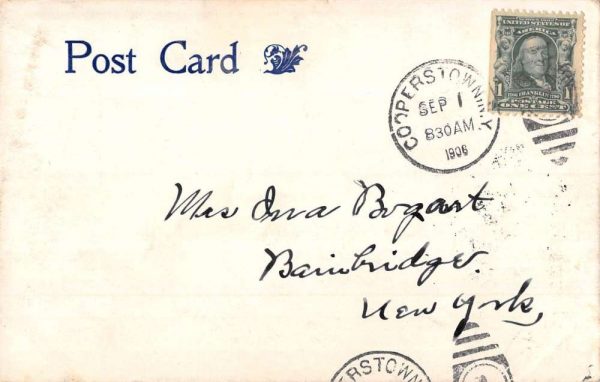 Post Card
COOPERSTOWN, N.Y.
SEP 1
830AM
1906
UNITED STATES OF
AMERICA
1 FRANKLIN 1
POSTAGE
ONE CENT
Mrs Ora Bogart
Bainbridge
New York
ERSTOWN